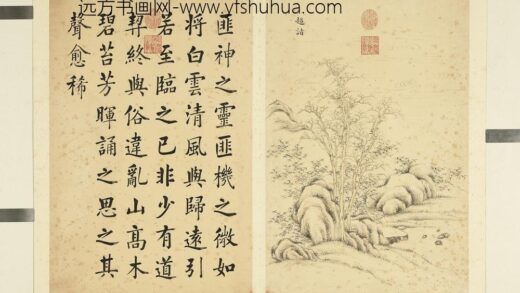 远方书画网-www.yfshuhua.com
匪神之靈匪機之微如
將白雲清風與歸遠引
若至臨之已非少有道
契終與俗違亂山高木
碧苔芳暉誦之思之其
聲愈稀
超詣